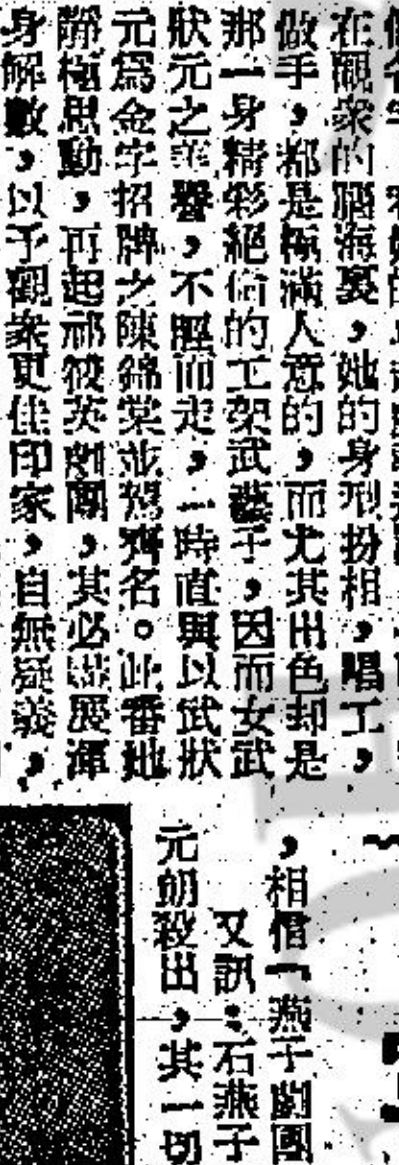 在觀衆的腦海裏，她的身形扮相，唱工，
做手，都是極滿人意的，而尤其出色却是
那一身精彩絕倫的工架武藝子，因而女武
狀元之美譽，不脛而走，一時直與以武狀
元爲金字招牌之陳錦棠並駕齊名。此番她
靜極思動，再起祁筱英劇團，其必盡展渾
身解數，以予觀衆更佳印家，自無疑義，
，相信「燕子劇團
又訊：石燕子
元朗殺出，其一切